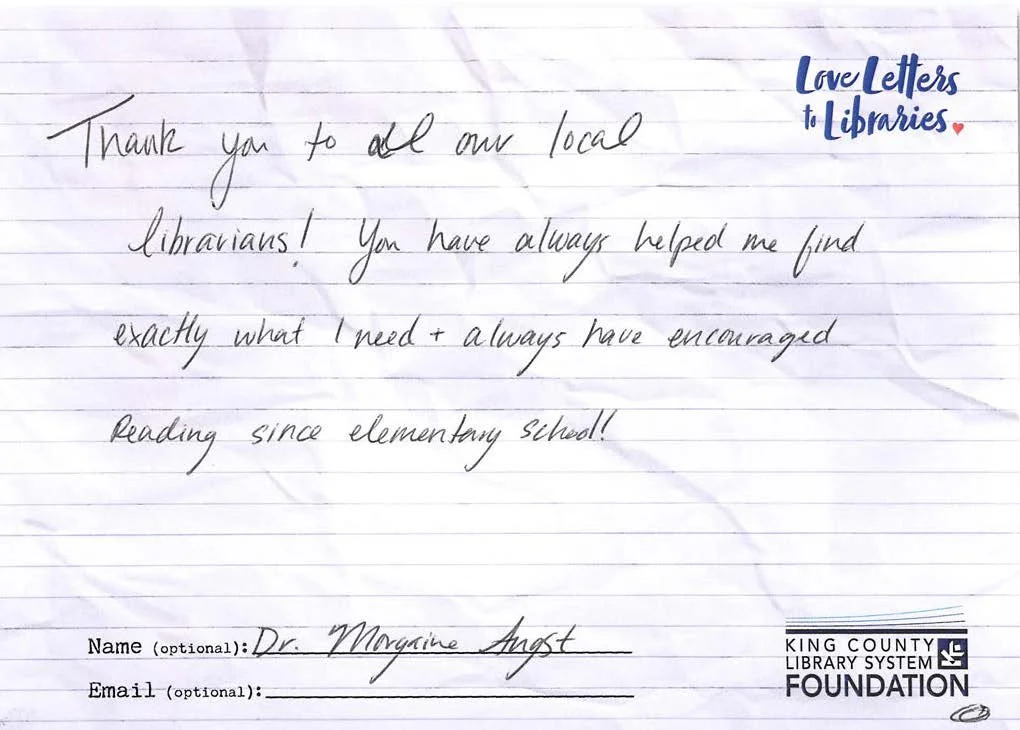 Love Letters
to Libraries
Thank you to all our local
librarians! You have always helped me find
exactly what I need + always have encouraged
Reading since elementary school!
Name (optional): Dr. Morgaine Angst
Email (optional):
KING COUNTY
LIBRARY SYSTEM
FOUNDATION